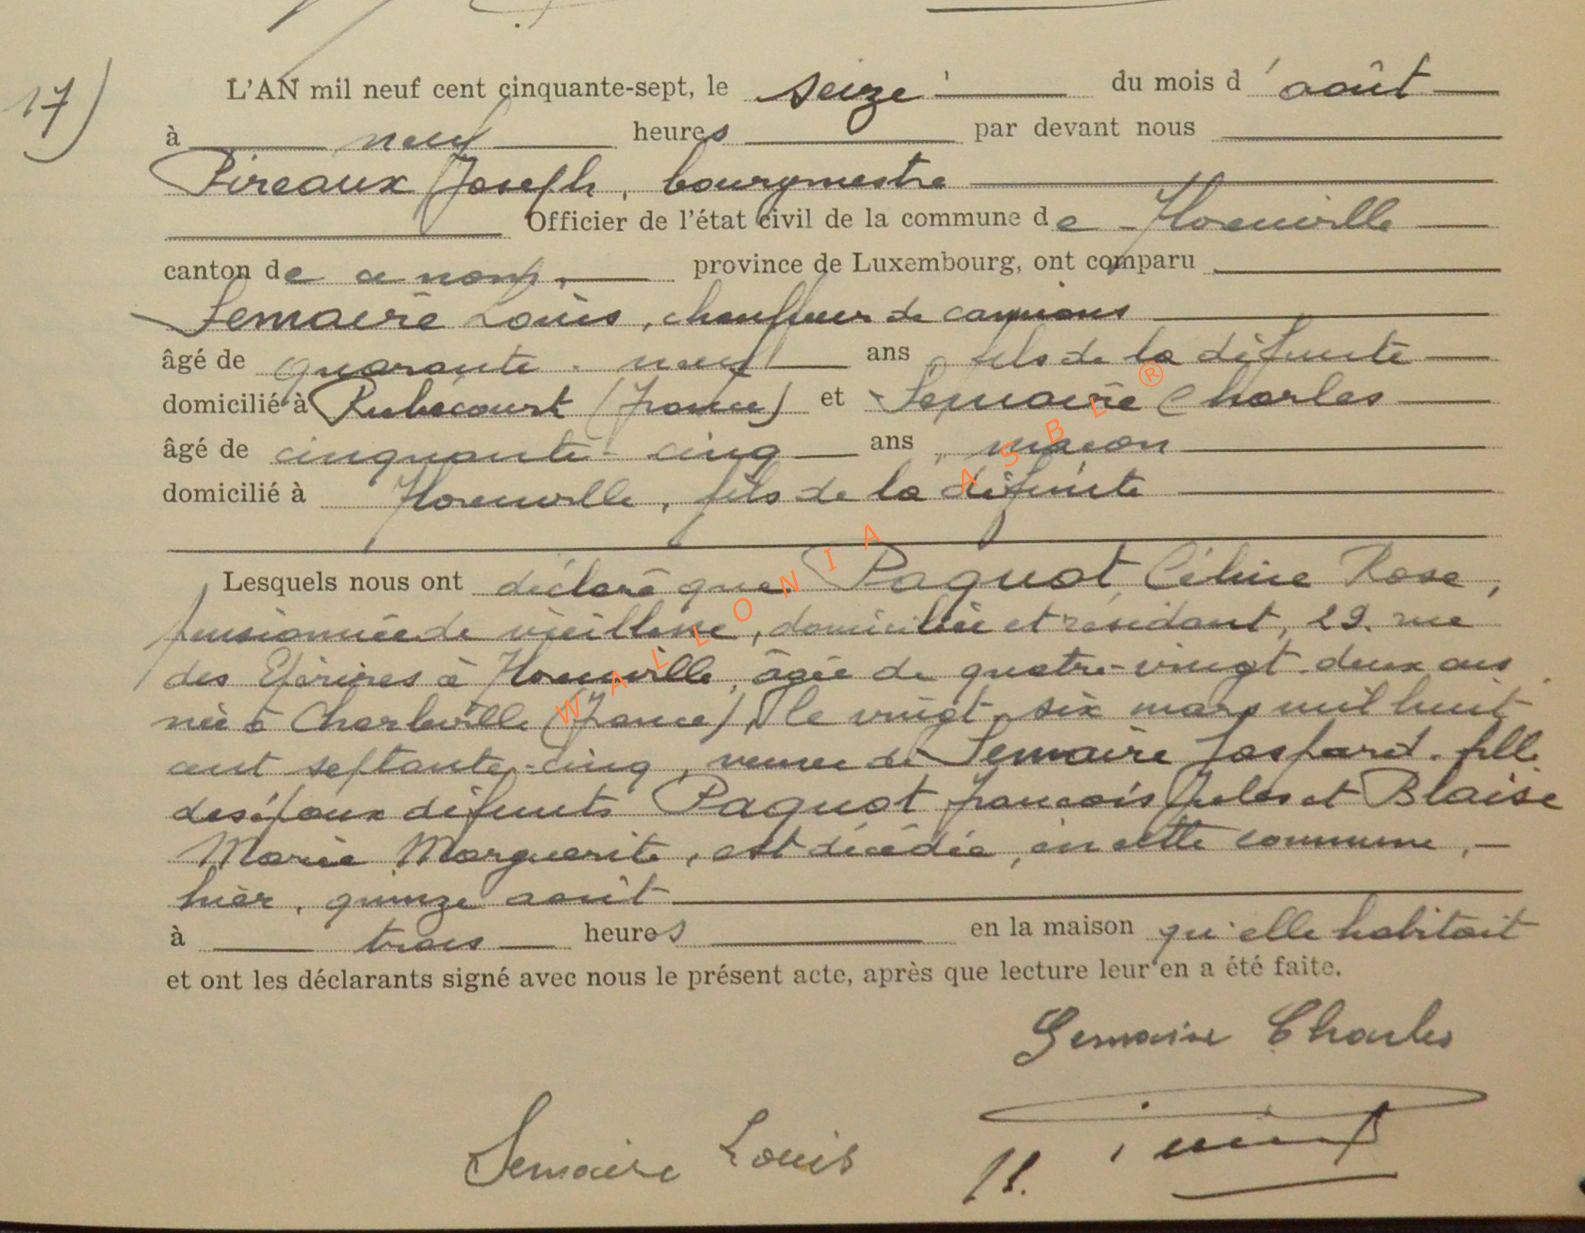 17)
L'AN mil neuf cent cinquante-sept, le seize du mois d'août
à neuf heures par devant nous
Pireaux Joseph, bourgmestre
Officier de l'état civil de la commune de Florenville
canton de ce nom, province de Luxembourg, ont comparu
Semaire Louis, chauffeur de camions
âgé de quarante-neuf ans, fils de la défunte
domicilié à Rubécourt (France) et Semaire Charles
âgé de cinquante-cinq ans, maçon
domicilié à Florenville, fils de la défunte
Lesquels nous ont déclaré que Paquot, Céline Rose,
pensionnée de vieillesse, domiciliée et résidant, 29, rue
des Epérires à Florenville, âgée de quatre-vingt-deux ans,
née à Charleville (France), le vingt-six mars mil huit
cent septante-cinq, veuve de Semaire Gaspard, fille
des époux défunts Paquot François Jules et Blaise
Marie Marguerite, est décédée, en cette commune,
hier, quinze août
à trois heures en la maison qu'elle habitait
et ont les déclarants signé avec nous le présent acte, après que lecture leur en a été faite.
Semaire Charles
Semaire Louis
WALLONIA ASBL ®